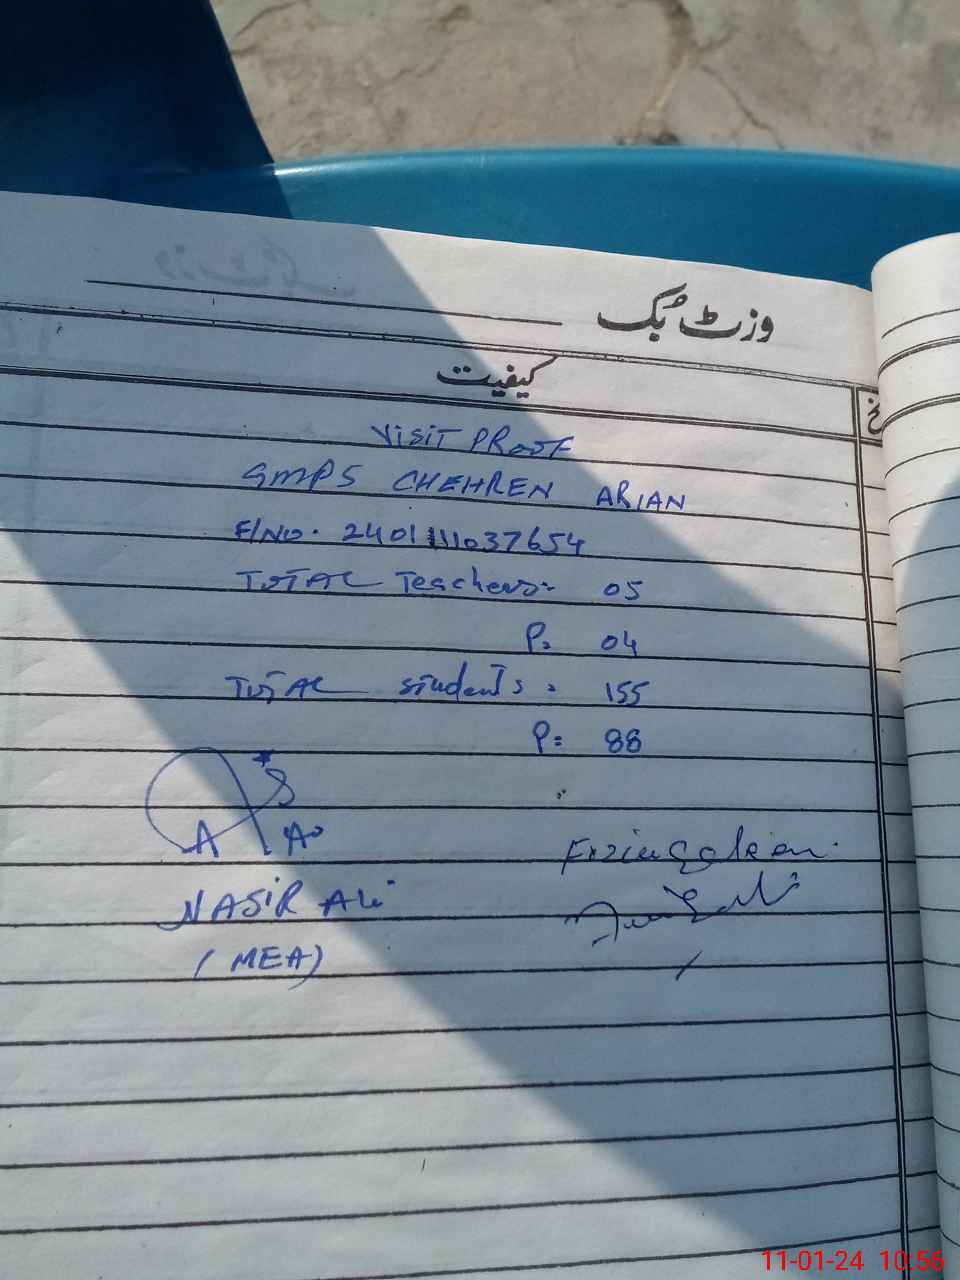 وزٹ بُک
کیفیت
VISIT PROOF
GMPS CHEHREN ARIAN
F/NO. 2401111037654
TOTAL Teachers:- 05
P= 04
TOTAL Students = 155
P= 88
NASIR ALi
(MEA)
11-01-24 10:56